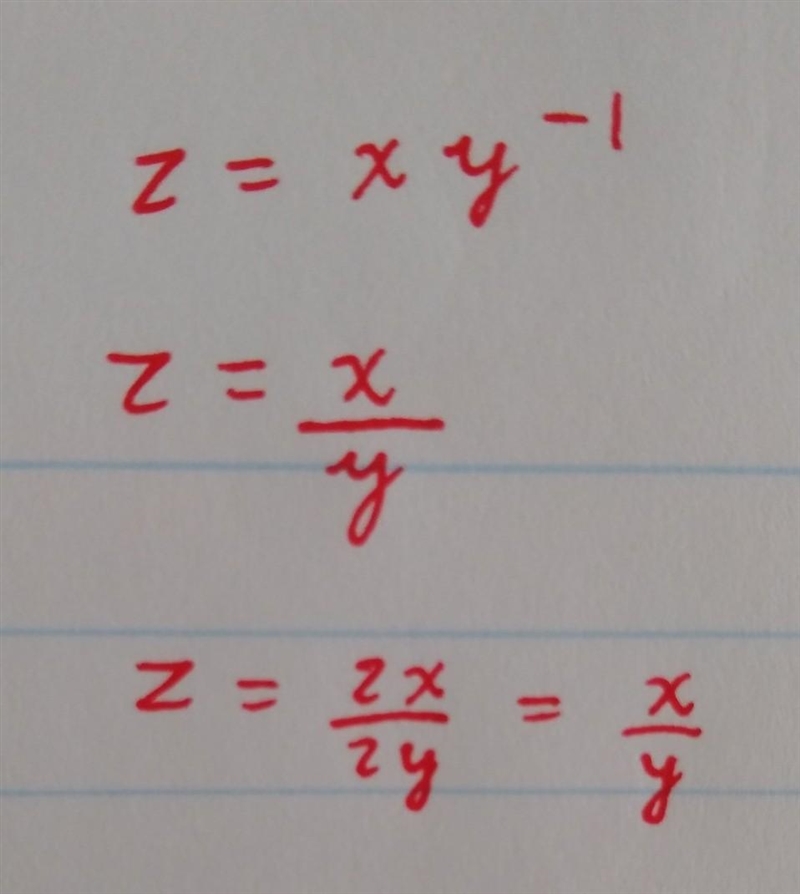 z = x y⁻¹
z = x/y
z = 2x/2y = x/y